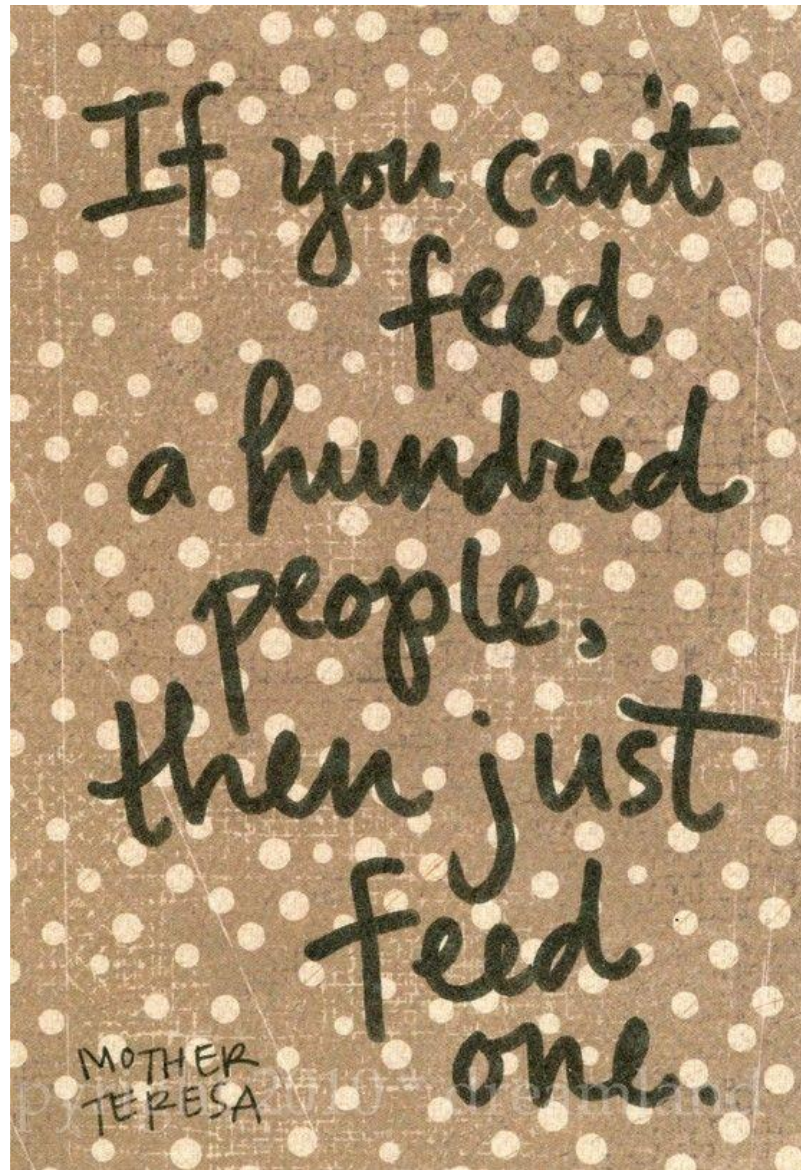 If you can't
feed
a hundred
people,
then just
feed
one.
MOTHER
TERESA
2010 dreamland